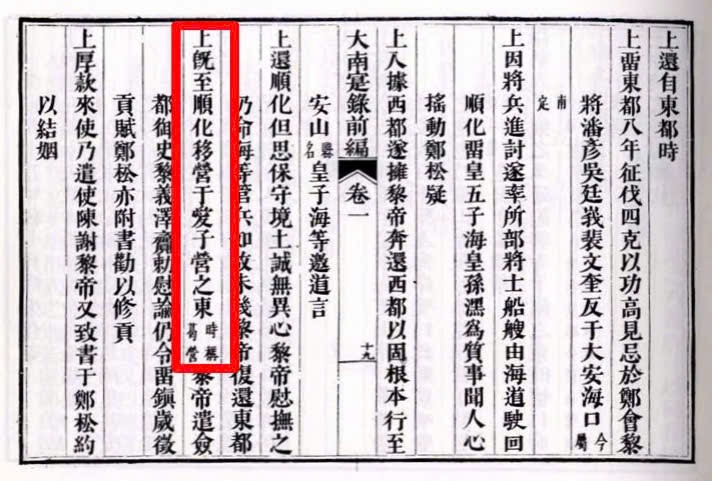 上還自東都時
上畱東都八年征伐四克以功高見忌於鄭會黎
將潘彥吳廷峩裴文奎反于大安海口今屬
南定
上因將兵進討遂率所部將士船艘由海道駛回
順化畱皇五子海皇孫潶為質事聞人心
搖動鄭松疑
上入據西都遂擁黎帝奔還西都以固根本行至
大南寔錄前編 卷一 十九
安山縣名皇子海等邀道言
上還順化但思保守境土誠無異心黎帝慰撫之
仍命海等管兵如故未幾黎帝復還東都
上旣至順化移營于愛子營之東時稱葛營黎帝遣僉
都御史黎義澤齎勅慰諭仍令畱鎮歲徵
貢賦鄭松亦附書勸以修貢
上厚款來使乃遣使陳謝黎帝又致書于鄭松約
以結姻